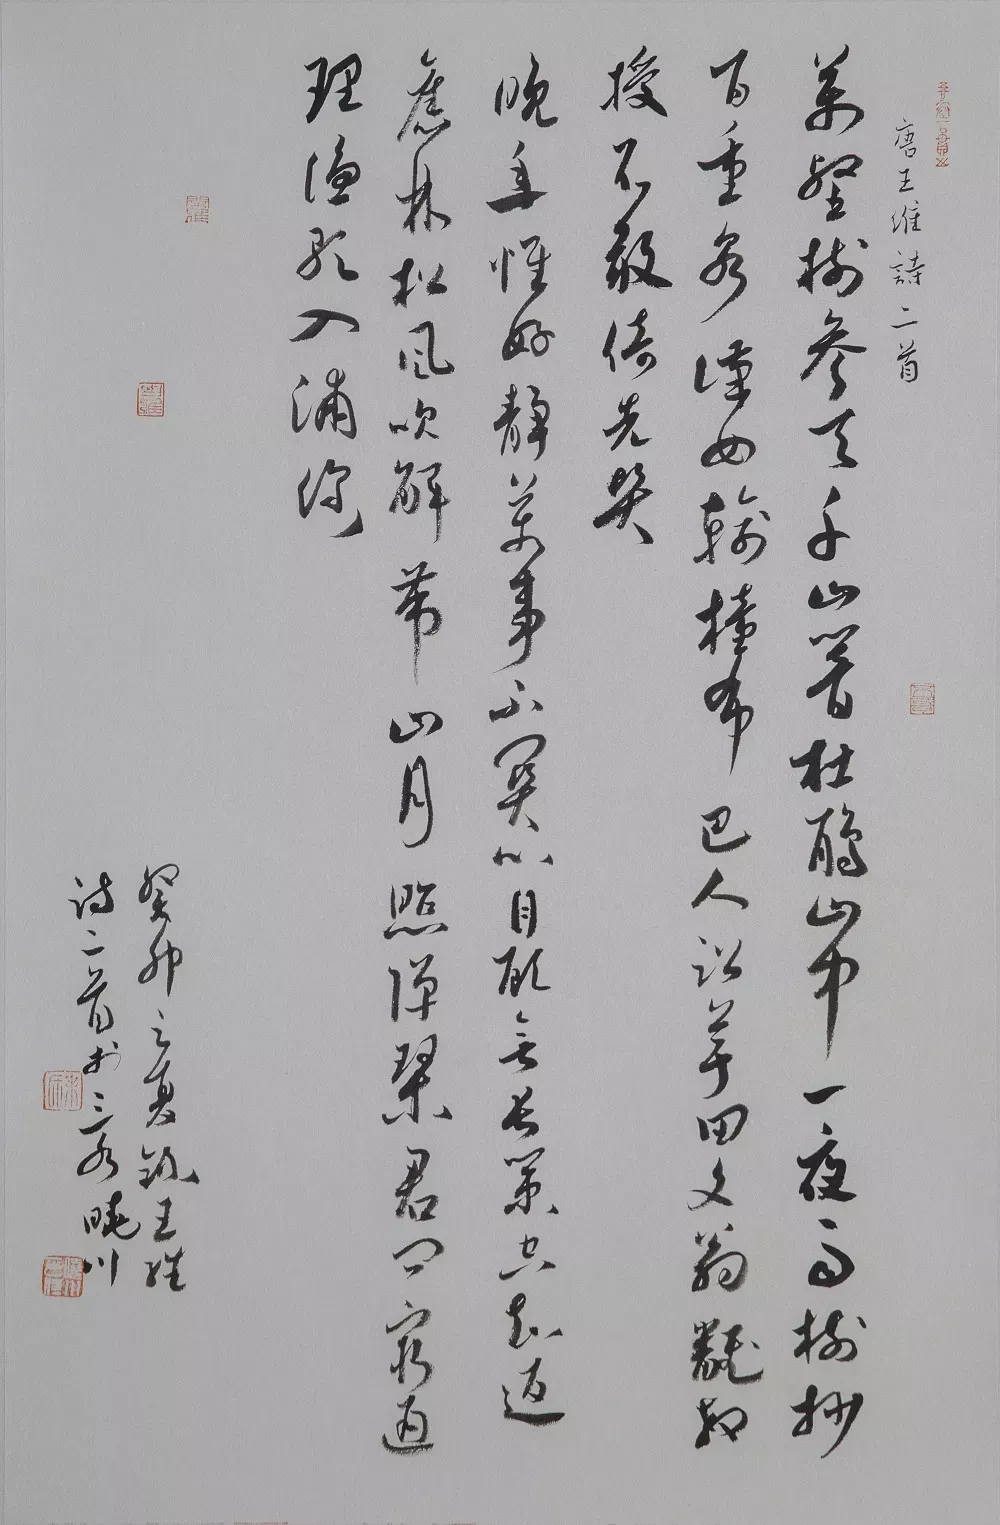 唐王維詩二首
萬壑樹參天千山響杜鵑山中一夜雨樹杪
百重泉漢女輸橦布巴人訟芋田文翁翻教
授不敢倚先賢
晚年惟好靜萬事不關心自顧無長策空知返
舊林松風吹解帶山月照彈琴君問窮通
理漁歌入浦深
癸卯之夏録王維
诗二首於三水曉川